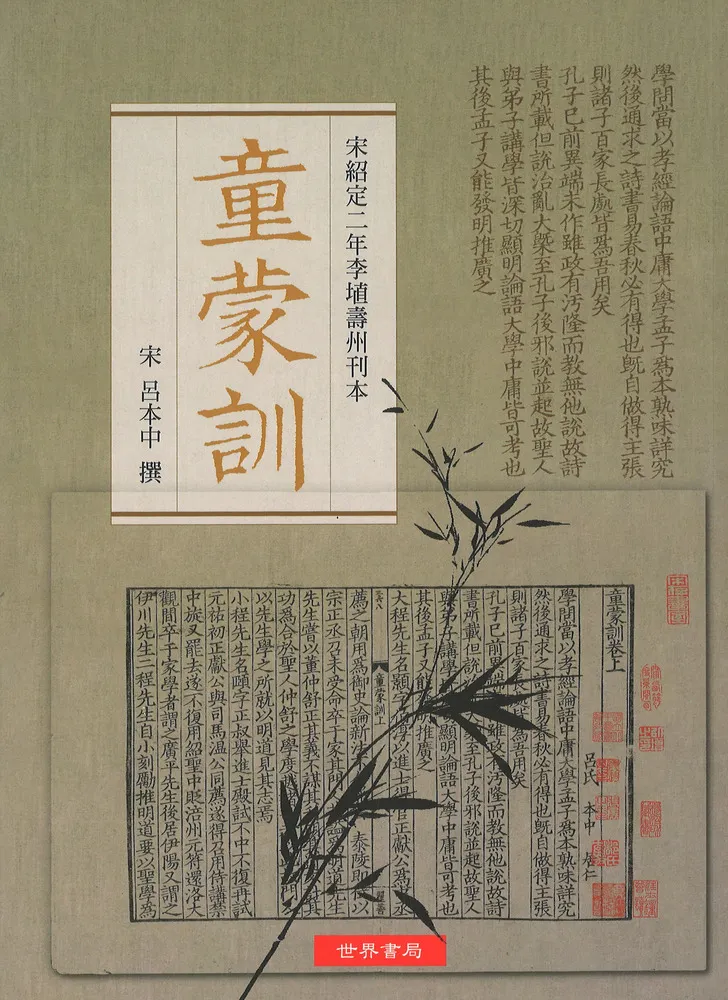 學問當以孝經論語中庸大學孟子爲本熟味詳究
然後通求之詩書易春秋必有得也既自做得主張
則諸子百家長處皆爲吾用矣
孔子已前異端未作雖政有汚隆而教無他說故詩
書所載但說治亂大槩至孔子後邪說並起故聖人
與弟子講學皆深切顯明論語大學中庸皆可考也
其後孟子又能發明推廣之
宋紹定二年李埴壽州刊本
童蒙訓
宋 呂本中 撰
童蒙訓卷上
呂氏 本中 居仁
學問當以孝經論語中庸大學孟子爲本熟味詳究
然後通求之詩書易春秋必有得也既自做得主張
則諸子百家長處皆爲吾用矣
孔子已前異端未作雖政有汚隆而教無他說故詩
書所載但說治亂大槩至孔子後邪說並起故聖人
與弟子講學皆深切顯明論語大學中庸皆可考也
其後孟子又能發明推廣之
大程先生名顥字伯淳以進士得官正獻公爲中丞
童蒙訓上
薦之朝用爲御史論新法不 泰陵即位以
宗正丞召未受命卒于家其門 明道先生
先生嘗以董仲舒正其義不謀其
功爲合於聖人仲舒之學度越
以先生學之所就以明道見其志焉
小程先生名頤字正叔舉進士殿試不中不復再試
元祐初正獻公與司馬溫公同薦遂得召用侍講禁
中旋又罷去遂不復用紹聖中貶涪州元符還洛大
觀間卒于家學者謂之廣平先生後居伊陽又謂之
伊川先生二程先生自小刻勵推明道要以聖學爲
世界書局